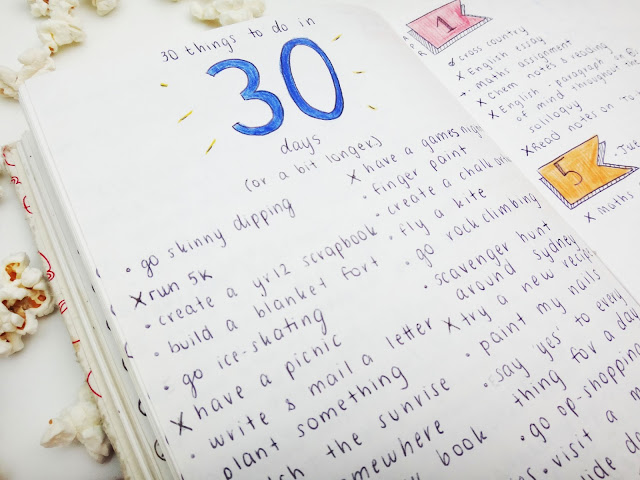 30 things to do in
30
days
(or a bit longer)
• go skinny dipping
X run 5k
• create a yr12 scrapbook
• build a blanket fort
• go ice-skating
X have a picnic
• write & mail a letter
X plant something
the sunrise
book
X have a games
• finger paint
• create a chalk
• fly a kite
• go rock climbing
• scavenger hunt
around Sydney
X try a new recipe
• paint my nails
• say 'yes' to every
thing for a day
• go op-shopping
• visit a
1
cross country
X English essay
maths assignment
X chem notes & reading
X English paragraph
of mind throughout
soliloquy
X Read notes on
5
X maths